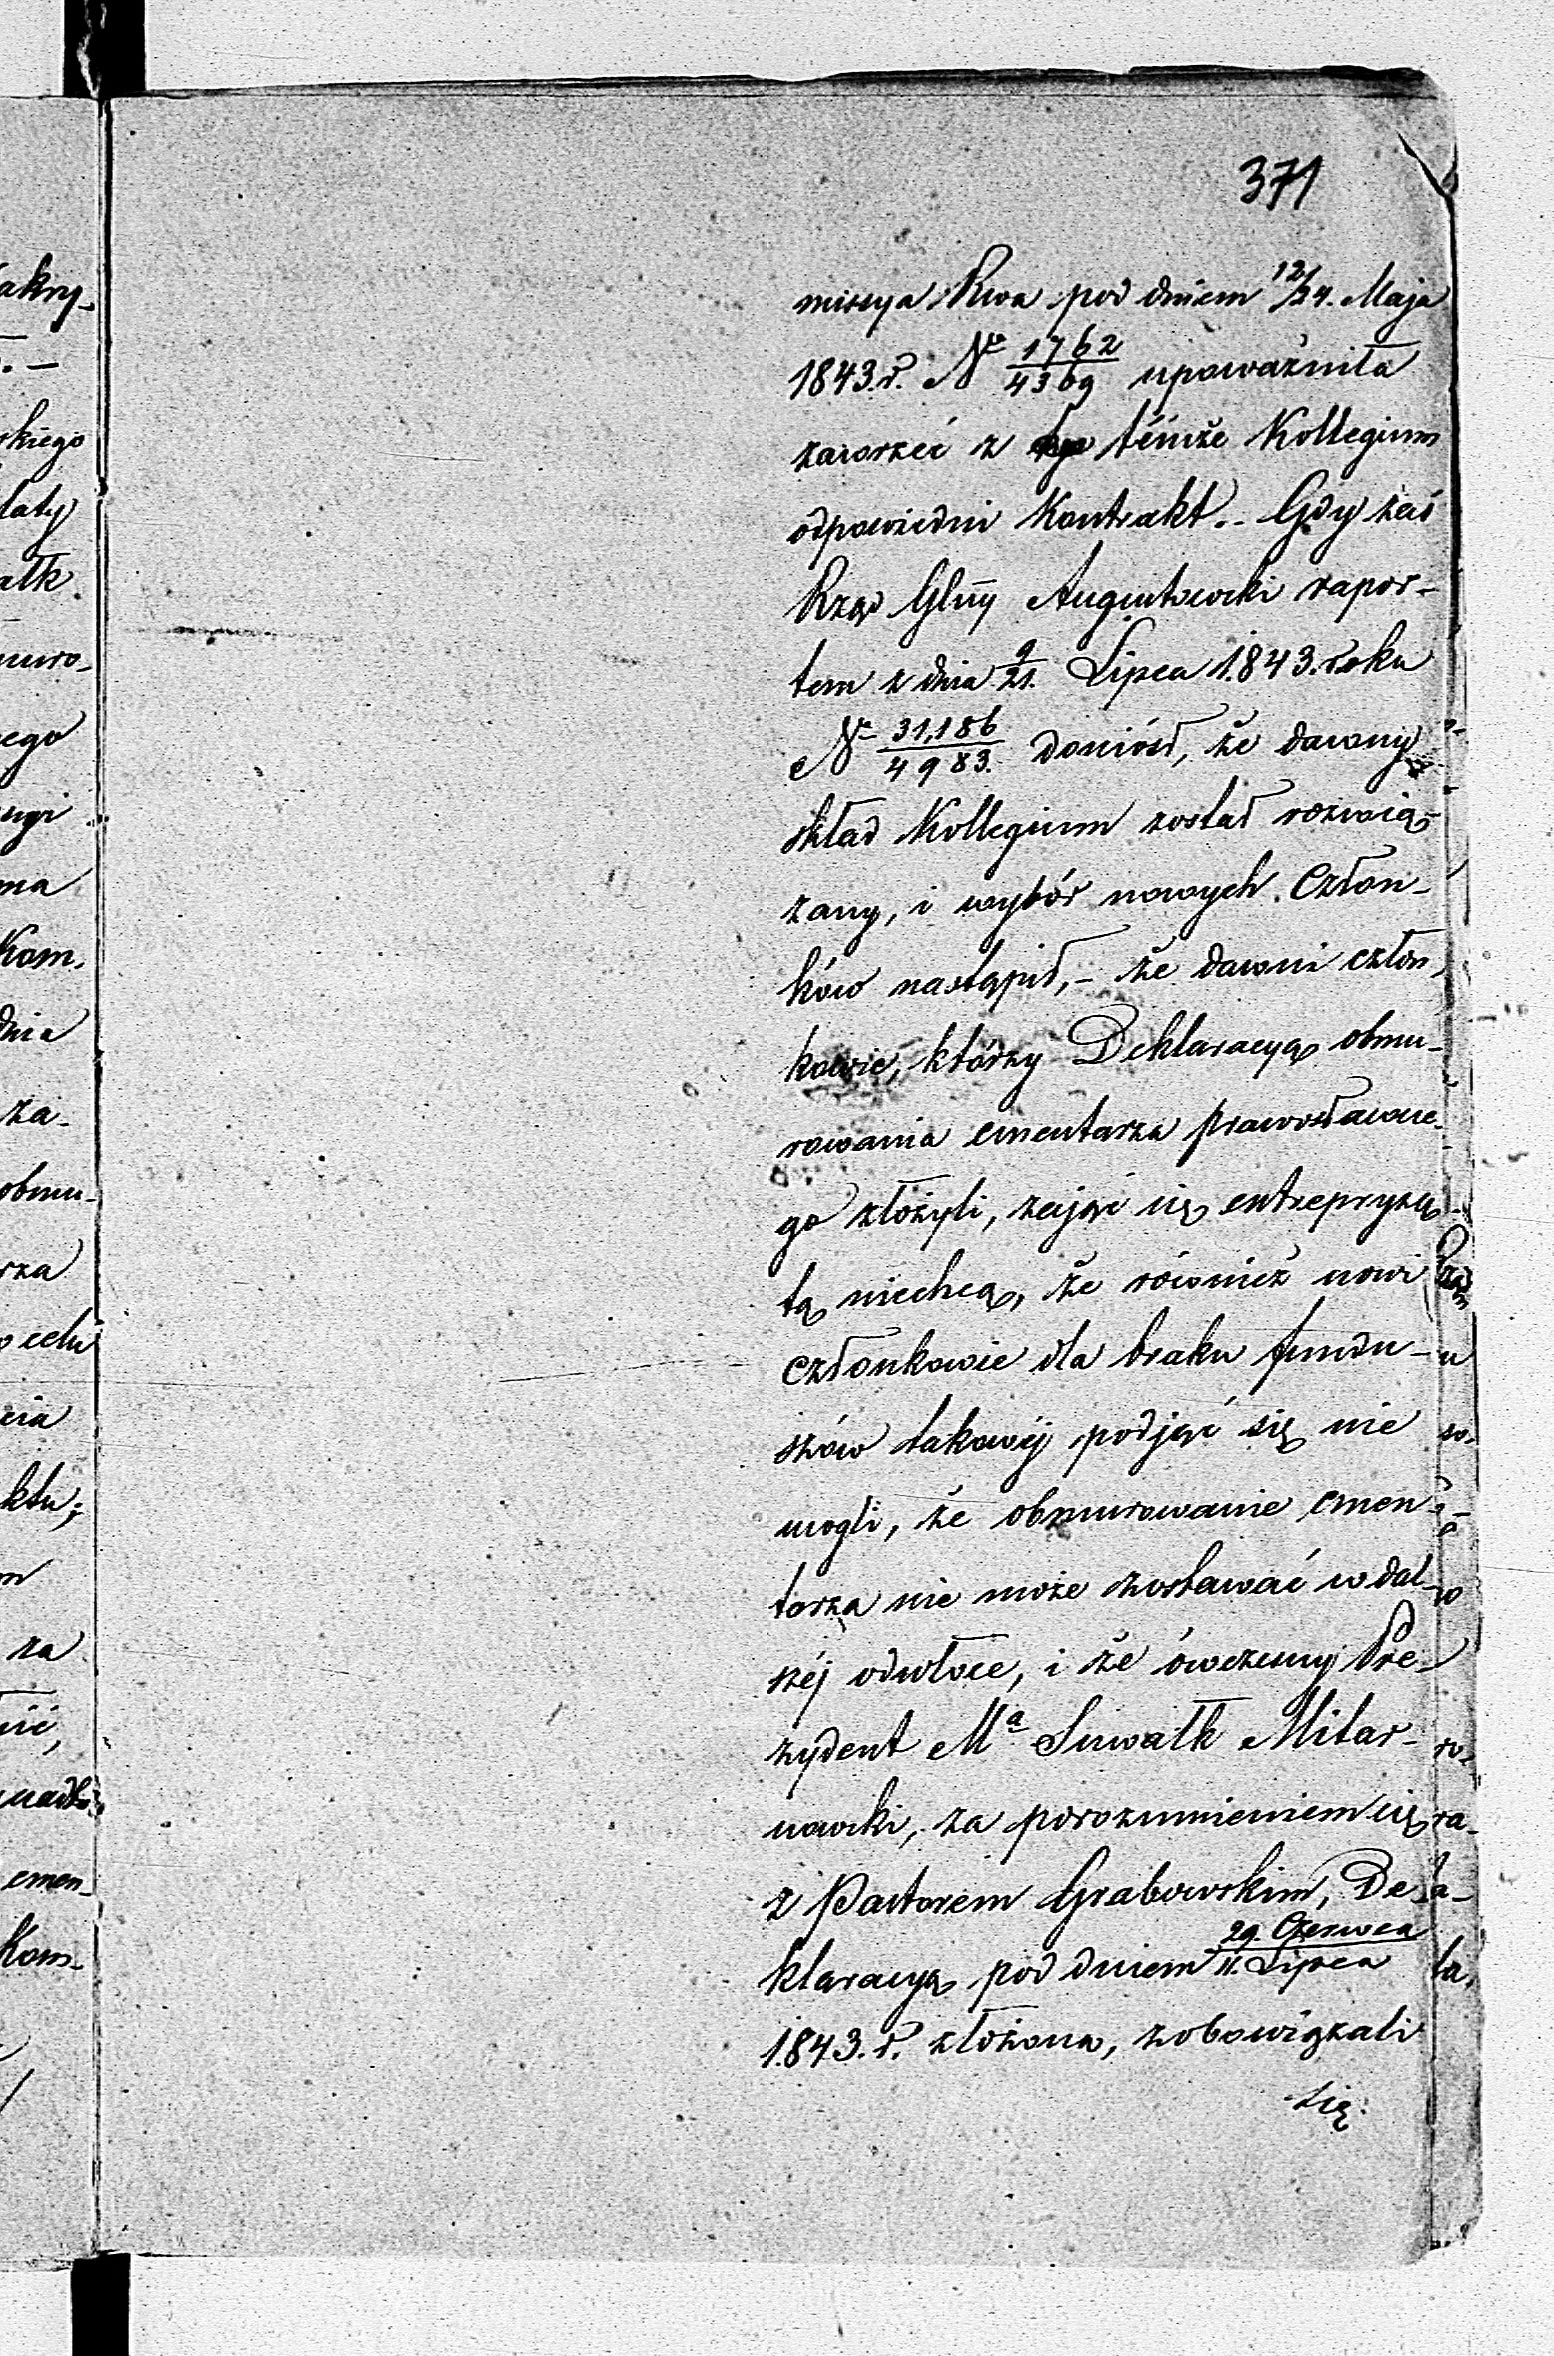 371
missya Rwa pod dniem 12/24. Maja
1843.r. No 1762/4369 upoważniła
zawrzeć z témże Kollegium
odpowiedni Kontrakt.. Gdy zaś
Rząd Glny Augustowski rapor-
tem z dnia 9/21. Lipca 1843. roku
No 31,186/4983. doniósł, że dawny
skład Kollegium został rozwią-
zany, i wybór nowych Człon-
ków nastąpił,- że dawni człon-
kowie, którzy Deklaracyą obmu-
rowania cmentarza prawosławne-
go złożyli, zająć się entrepryzą
tą niechcą, że również nowi
członkowie dla braku fundu-
szów takowéj podjąć się nie
mogli, że obmurowanie cmen-
tarza nie może zostawać w dal-
széj odwłoce, i że ówczesny Pre-
zydent Ma Suwałk Milar-
nowski, za porozumieniem się
z Pastorem Grabowskim, De-
klaracyą pod dniem 29. Czerwca/11. Lipca
1843. r. złożoną, zobowiązali
się.
akry-
skiego
łaty
ałk.
muro-
ego
ugi
ma
Kom.
dnia
za-
obmu-
rza
celu
cia
ktu;
m
za
cmen-
Kom-